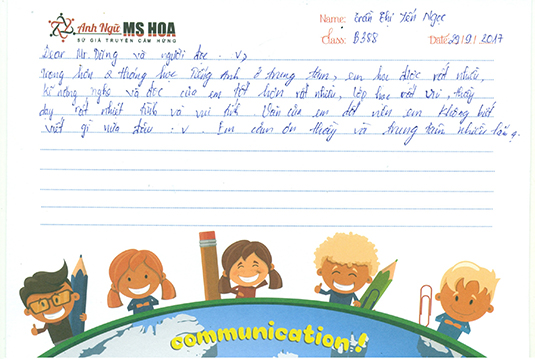 Anh Ngữ MS HOA
SỨ GIẢ TRUYỀN CẢM HỨNG
Name: Trần Thị Yến Ngọc
Class: B388
Date: 29/9/2017
Dear Mr. Dũng và người đọc. :v
Trong hơn 2 tháng học Tiếng Anh ở trung tâm, em học được rất nhiều,
kĩ năng nghe và đọc của em tốt hơn rất nhiều, lớp học rất vui, thầy
dạy rất nhiệt tình và vui tính. Văn của em dốt nên em không biết
viết gì nữa đâu :v Em cảm ơn thầy và trung tâm nhiều lắm ạ.
communication!